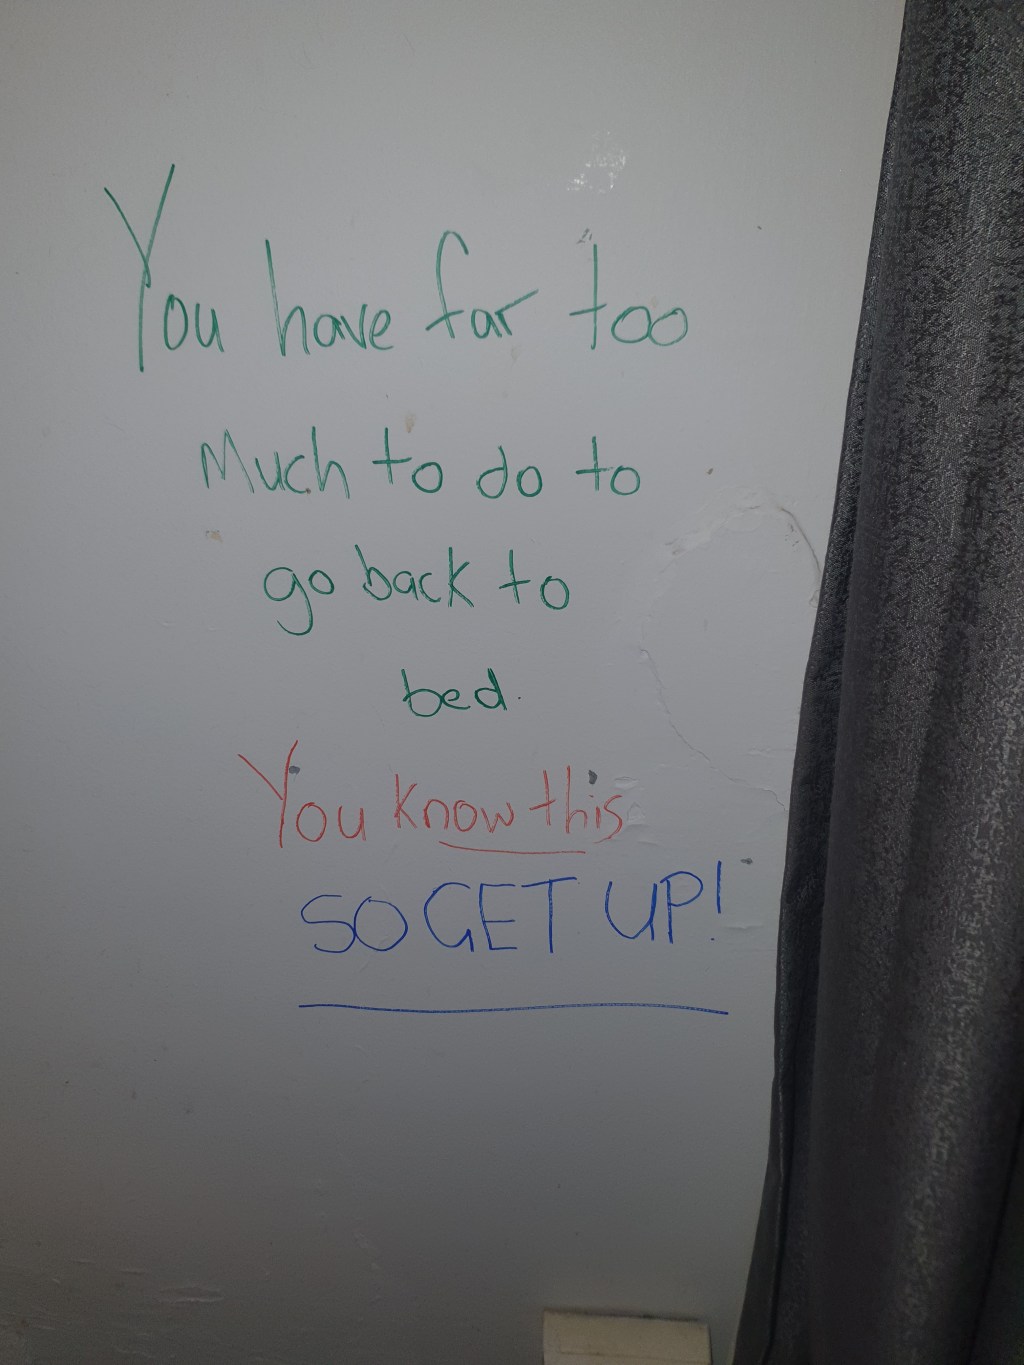 You have far too
Much to do to
go back to
bed.
You know this
SO GET UP!